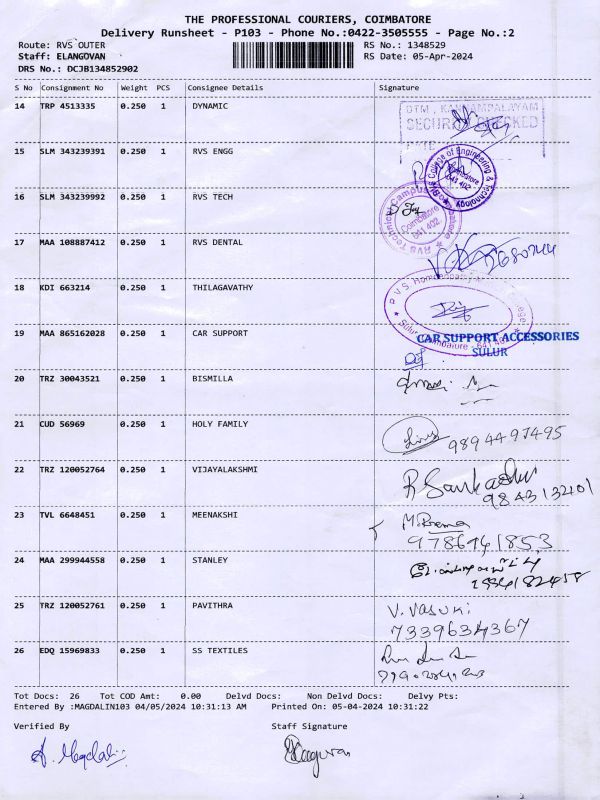 THE PROFESSIONAL COURIERS, COIMBATORE
Delivery Runsheet - P103 - Phone No.:0422-3505555 - Page No.:2
Route: RVS OUTER RS No.: 1348529
Staff: ELANGOVAN RS Date: 05-Apr-2024
DRS No.: DCJB134852902
S No Consignment No Weight PCS Consignee Details Signature
14 TRP 4513335 0.250 1 DYNAMIC
SECURITY CHECKED
15 SLM 343239391 0.250 1 RVS ENGG
RVS College of Engineering & Technology
Coimbatore
641 402.
16 SLM 343239992 0.250 1 RVS TECH
RVS Technical Campus
Coimbatore
641 402.
17 MAA 108887412 0.250 1 RVS DENTAL
18 KDI 663214 0.250 1 THILAGAVATHY
19 MAA 865162028 0.250 1 CAR SUPPORT
CAR SUPPORT ACCESSORIES
SULUR
20 TRZ 30043521 0.250 1 BISMILLA
21 CUD 56969 0.250 1 HOLY FAMILY
9894497495
22 TRZ 120052764 0.250 1 VIJAYALAKSHMI
9843132101
23 TVL 6648451 0.250 1 MEENAKSHI
9786941853
24 MAA 299944558 0.250 1 STANLEY
25 TRZ 120052761 0.250 1 PAVITHRA
V. Vasuki
7339634367
26 EDQ 15969833 0.250 1 SS TEXTILES
Tot Docs: 26 Tot COD Amt: 0.00 Delvd Docs: Non Delvd Docs: Delvy Pts:
Entered By :MAGDALIN103 04/05/2024 10:31:13 AM Printed On: 05-04-2024 10:31:22
Verified By Staff Signature